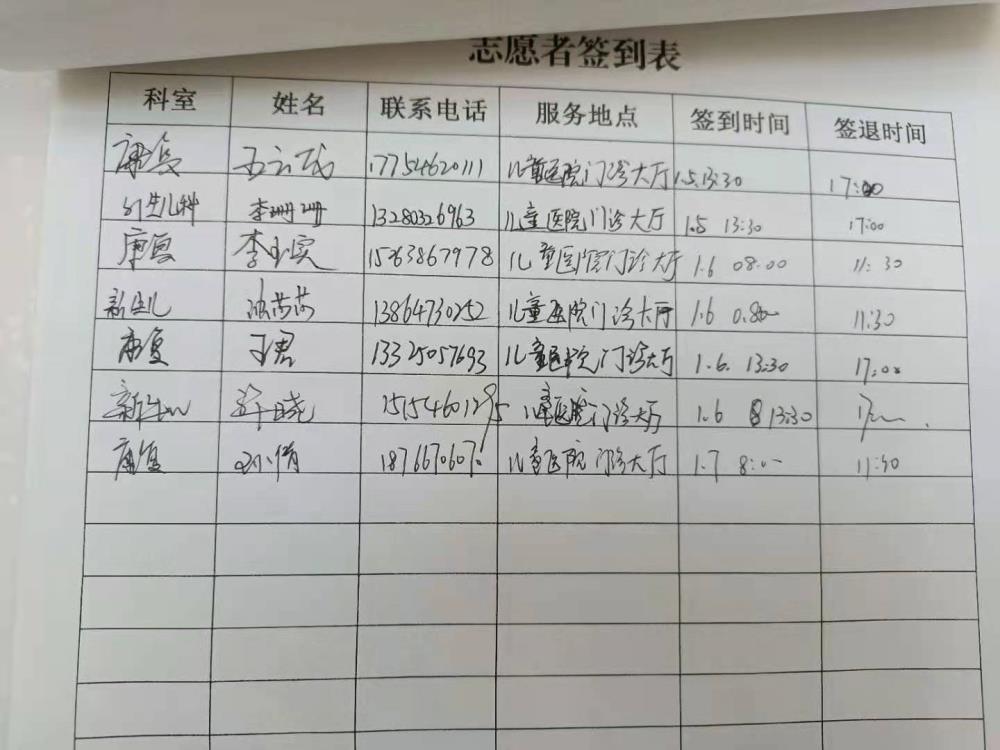 志愿者签到表
科室 姓名 联系电话 服务地点 签到时间 签退时间
康复 17754620111 儿童医院门诊大厅 1.5.13:30 17:00
李珊珊 13280326963 儿童医院门诊大厅 1.5 13:30 17:00
康复 李宝宾 15263867978 儿童医院门诊大厅 1.6 08:00 11:30
新生儿 13864730252 儿童医院门诊大厅 1.6 11:30
康复 王君 13325057693 儿童医院门诊大厅 1.6. 13:30 17:00
新生儿 晓 儿童医院门诊大厅 1.6 13:30
康复 孙倩 儿童医院门诊大厅 1.7 8:00 11:30